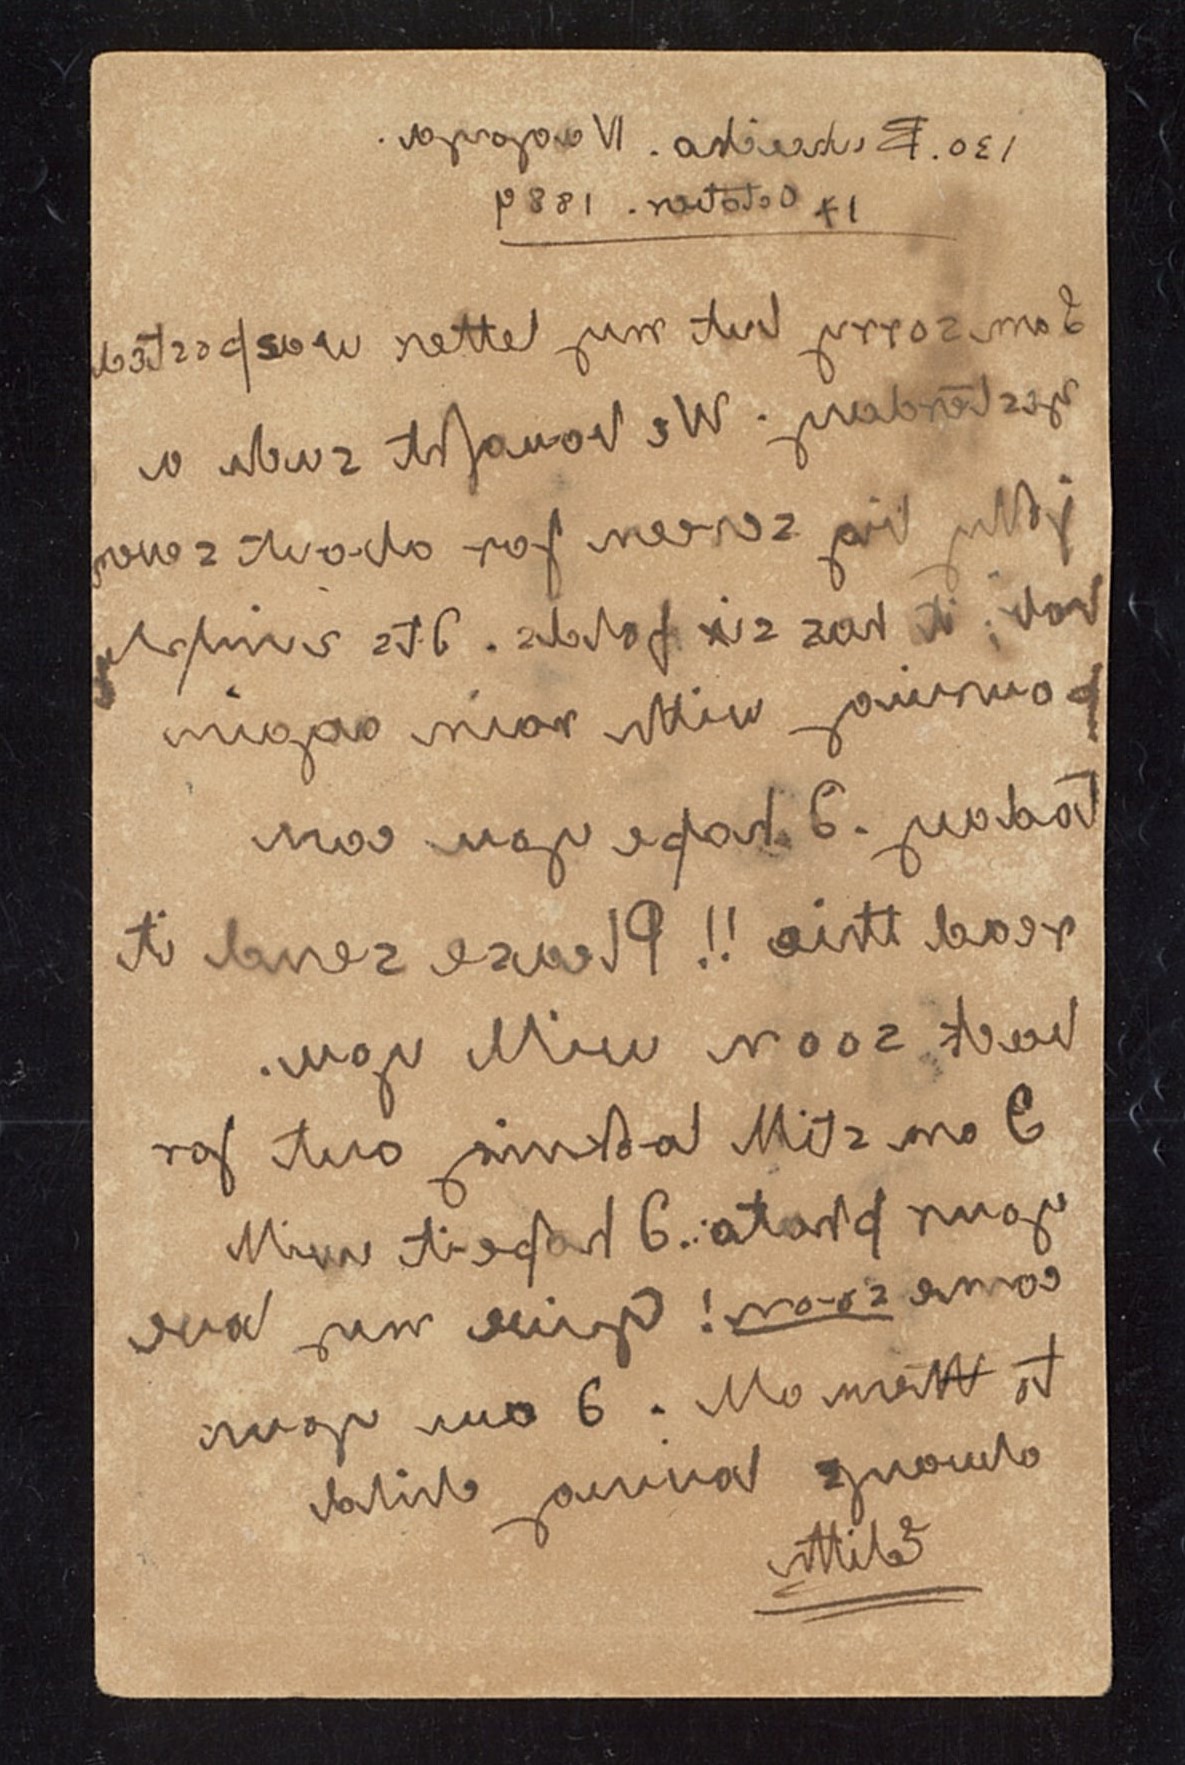 130. Bucheicha. Nagoya.
17 October. 1889
I am sorry but my letter was posted
yesterday. We bought such a
jolly big screen for about seven
bob; it has six folds. Its simply
pouring with rain again
today. I hope you can
read this!! Please send it
back soon will you.
I am still looking out for
your photo. I hope it will
come soon! Give my love
to them all. I am your
always loving child
Edith